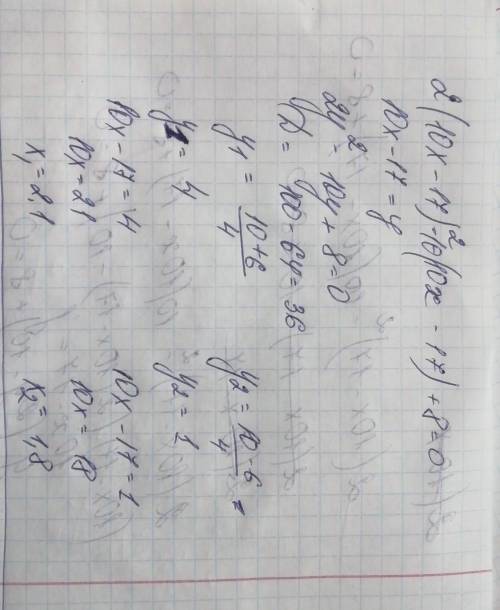 2(10x - 17)² - 10(10x - 17) + 8 = 0
10x - 17 = y
2y² - 10y + 8 = 0
D = 100 - 64 = 36
y1 = 10+6/4 y2 = 10-6/4 =
y1 = 4 y2 = 1
10x - 17 = 4 10x - 17 = 1
10x = 21 10x = 18
x1 = 2,1 x2 = 1,8